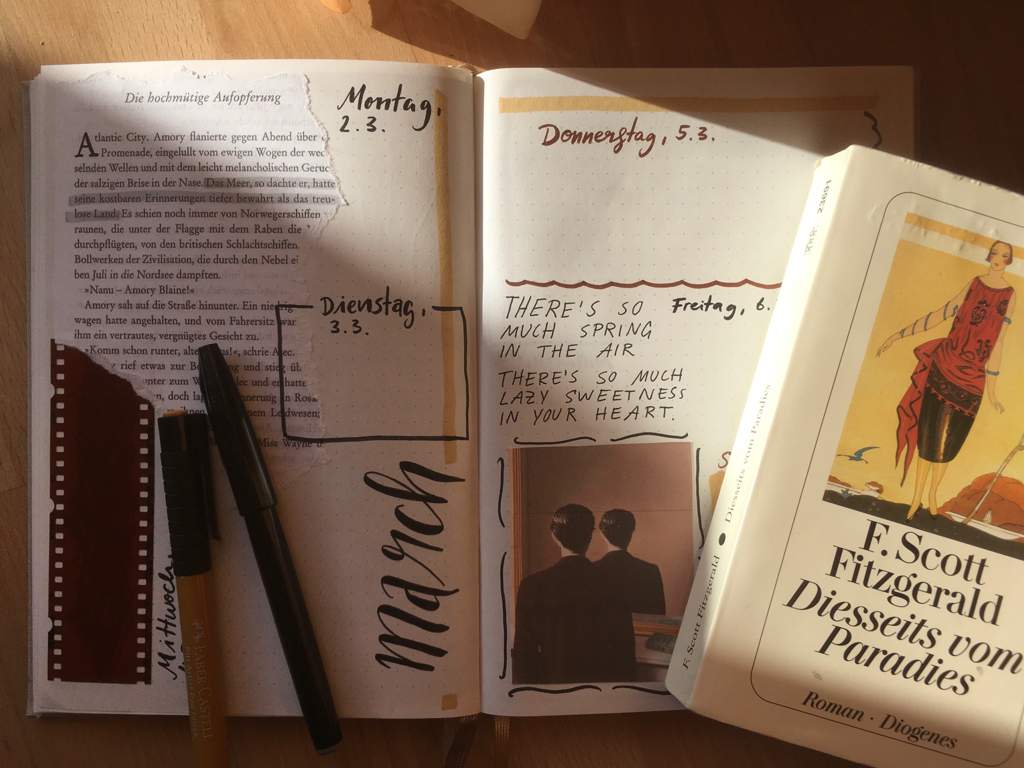 Die hochmütige Aufopferung
Atlantic City. Amory flanierte gegen Abend über
Promenade, eingelullt vom ewigen Wogen der
selnden Wellen und mit dem leicht melancholischen
der salzigen Brise in der Nase. Das Meer, so dachte er, hatte
seine kostbaren Erinnerungen tiefer bewahrt als das treu-
lose Land. Es schien noch immer von Norwegerschiffen
raunen, die unter der Flagge mit dem Raben die
durchpflügten, von den britischen Schlachtschiffen,
Bollwerken der Zivilisation, die durch den Nebel
ben Juli in die Nordsee dampften.
»Nanu – Amory Blaine!«
Amory sah auf die Straße hinunter. Ein
wagen hatte angehalten, und vom Fahrersitz war
ihm ein vertrautes, vergnügtes Gesicht zu.
»Komm schon runter, schrie Alec.
rief etwas zur und stieg
unter zum und er hatte
doch
Miss Wayne
Montag,
2.3.
Dienstag,
3.3.
Mittwoch
march
FABER-CASTELL
Donnerstag, 5.3.
THERE'S SO
MUCH SPRING
IN THE AIR
THERE'S SO MUCH
LAZY SWEETNESS
IN YOUR HEART.
Freitag, 6.
F. Scott Fitzgerald • Diesseits vom Paradies
23691
F. Scott
Fitzgerald
Diesseits vom
Paradies
Roman · Diogenes